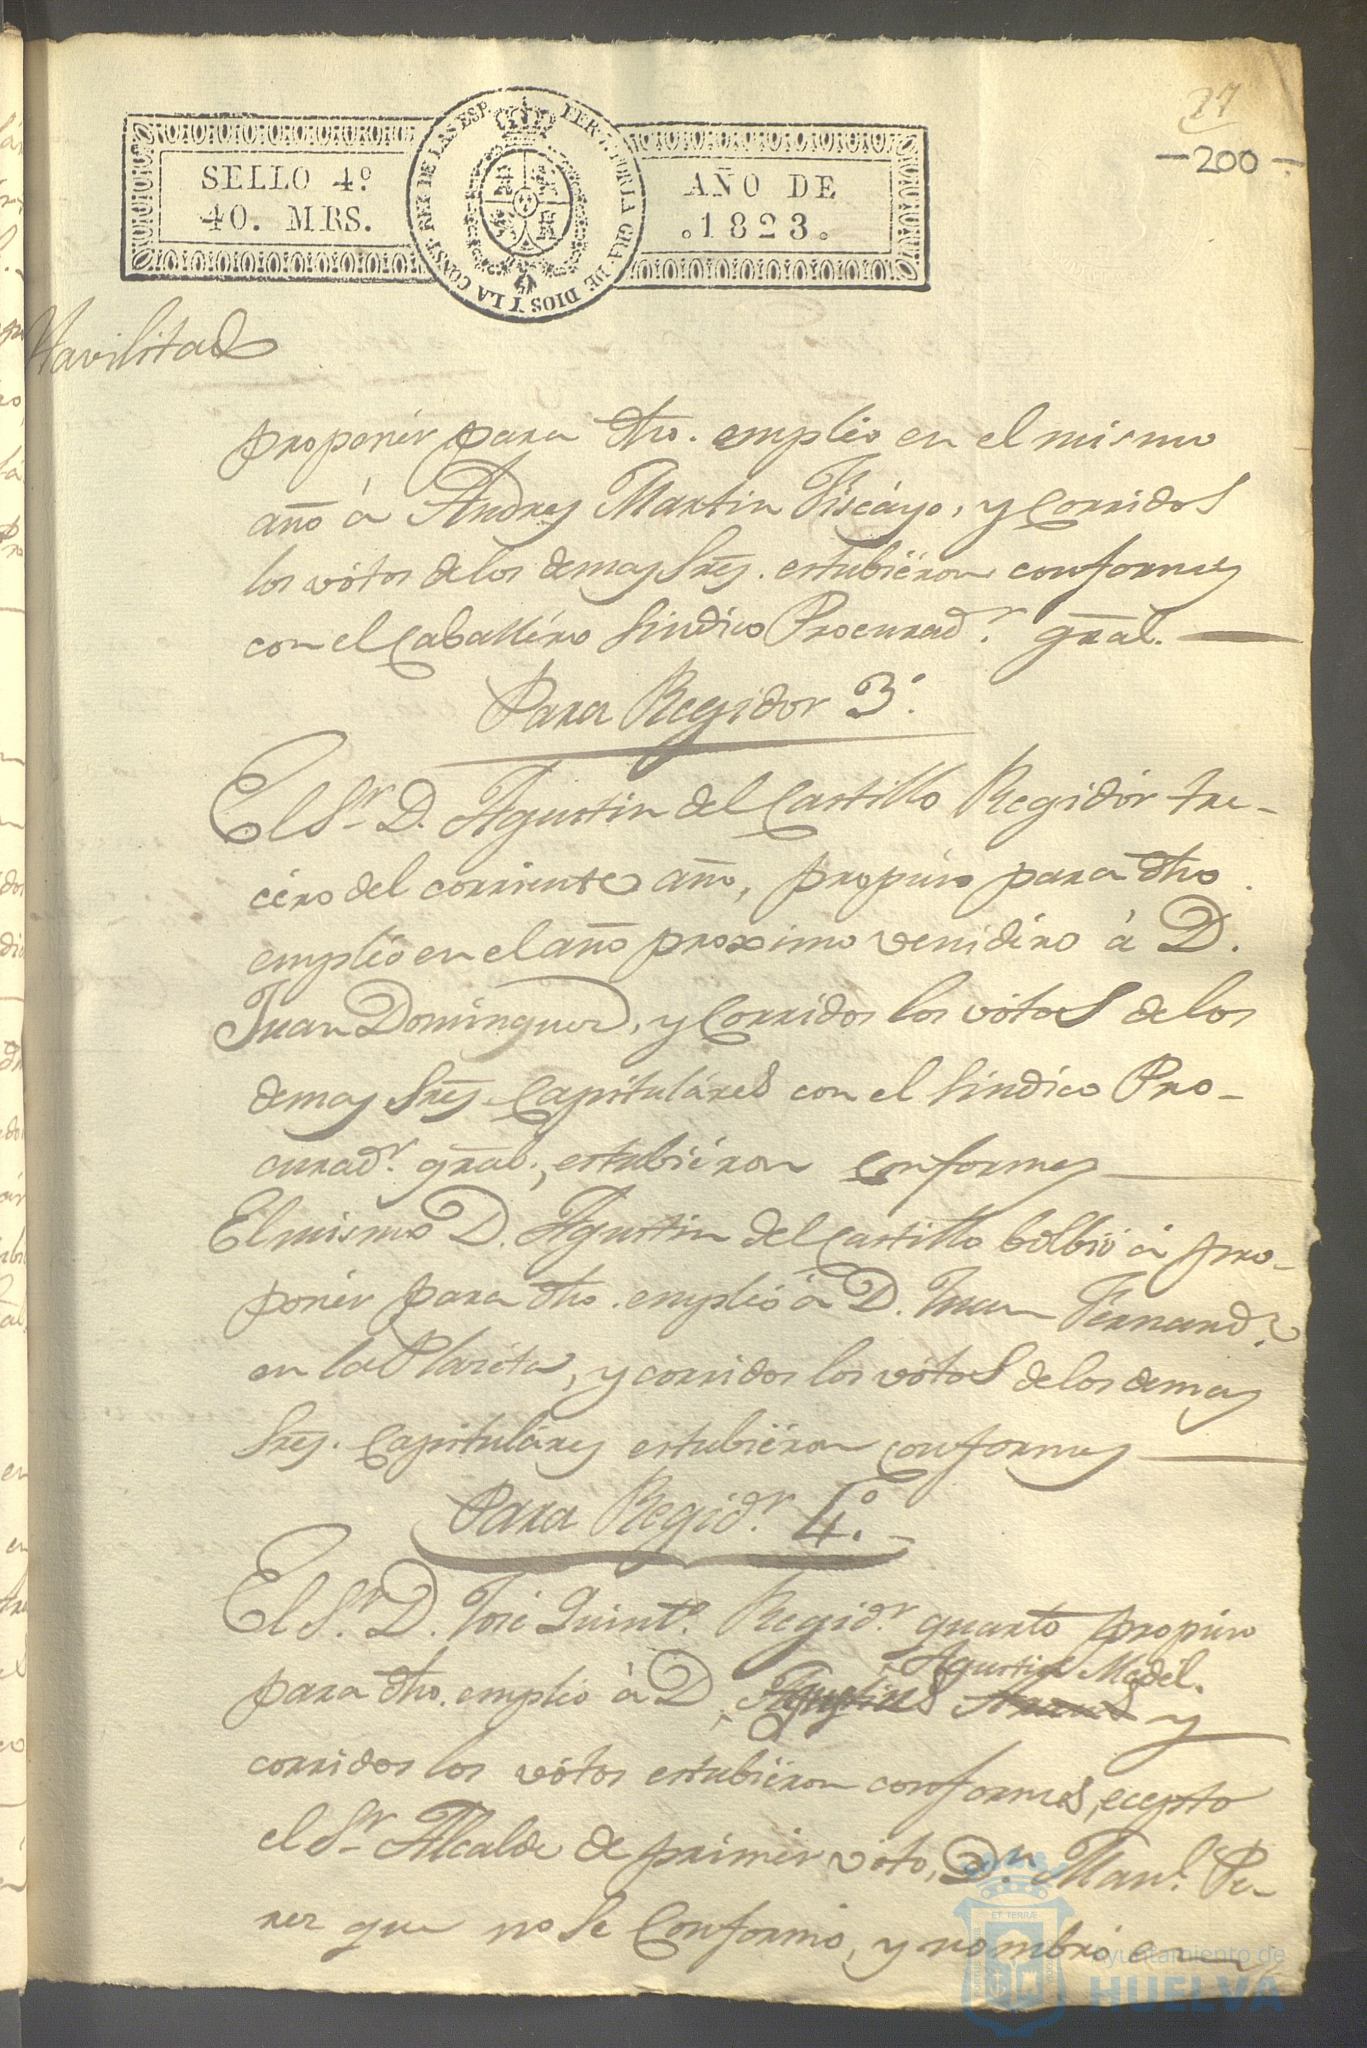 27
-200-
SELLO 4º
40. MRS.
FER. 7. POR LA GRA. DE DIOS Y LA CONST. REY DE LAS ESP.
AÑO DE
1823.
Havilitad
proponér para dho. empléo en el mismo
año á Andres Martin Viscáyo, y Corridos
los vótos de los demas Sres. estubiéron conformes
con el Caballéro Sindico Procurador. gral.
Para Regidor 3º.
El Sr. D. Agustin del Castillo Regidór ter-
céro del corriente año, propuso para dho
empléo en el año proximo venidéro á D.
Juan Dominguez, y Corridos los vótos de los
demas Sres. Capituláres con el Sindico Pro-
curadr. gral., estubiéron conformes
El mismo D. Agustin del Castillo bolbió á pro-
ponér para dho. empléo á D. Juan Fernandz.
en la Placeta, y corridos los vótos de los demas
Sres. Capituláres estubiéron conformes
Para Regidr. 4º.
El Sr. D. José Quint. Regidr. quarto propuso
Agustin Medel.
para dho. empléo á D. y
corridos los vótos estubiéron conformes, ecepto
el Sr. Alcalde de primér vóto, Dn. Manl. Pe-
rez que no se Conformó, y nombró en
ET TERRÆ
Ayuntamiento de
HUELVA